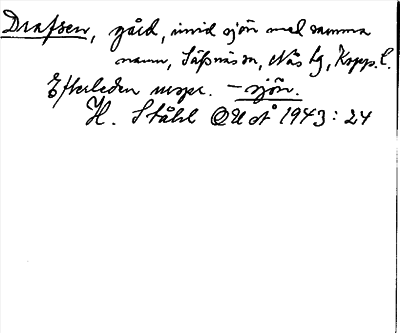 Drafsen, gård, invid sjön med samma
namn, Säfsnäs sn, Nås tg, Kopp. l.
Efterleden urspr. – sjön.
H. Ståhl OUÅ 1943: 24